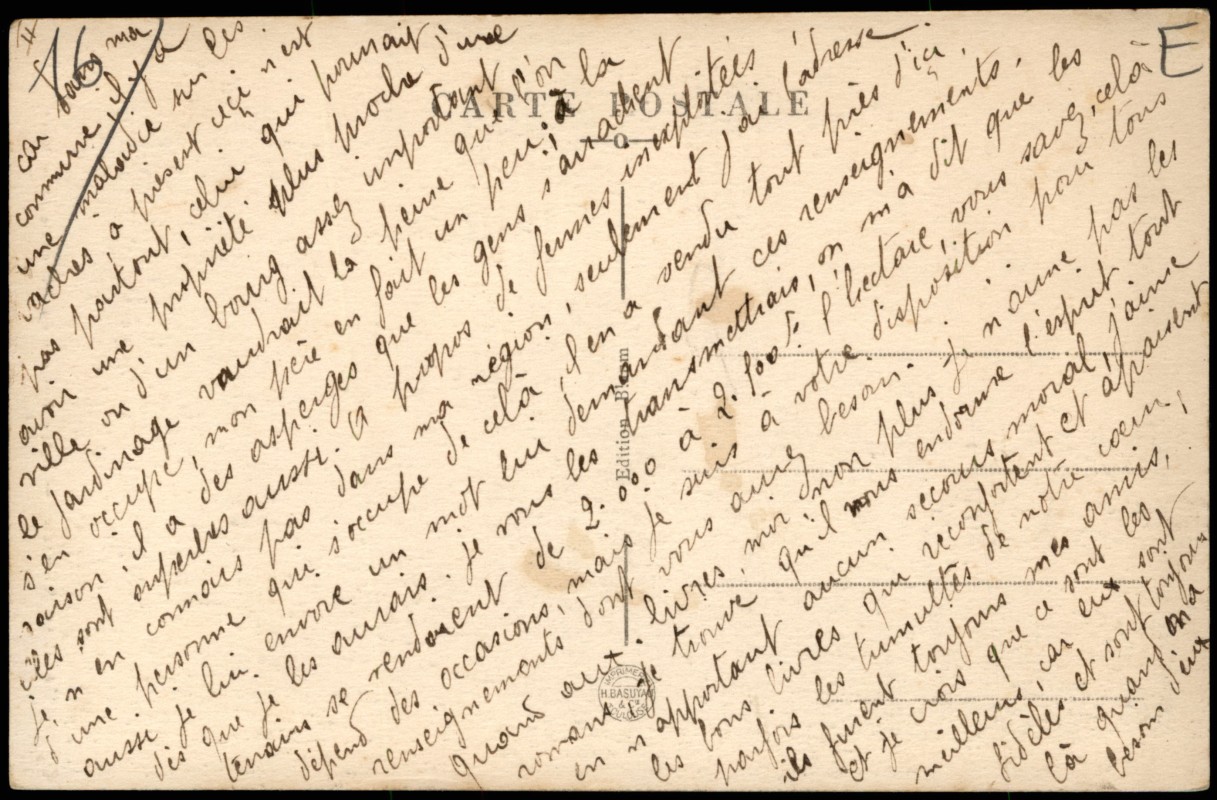 16
E
CARTE POSTALE
car dans ma
commune il y a
une maladie sur les
à présent ceci n'est
pas partout, celui qui pourrait
avoir une propriété plus proche d'une
ville ou d'un bourg assez important
le jardinage vaudrait la peine que l'on
s'en occupe, mon père en fait un peu; à la
saison il a des asperges que les gens s'arrachent
elles sont superbes aussi. A propos de fermes inexploitées
Je n'en connais pas dans ma région, seulement j'ai l'adresse
d'une personne qui s'occupe de celà il en a vendu tout près d'ici,
aussi je lui envoie un mot lui demandant ces renseignements.
dès que je les aurais je vous les transmettrais, on m'a dit que les
terrains se vendaient de 2.000 à 2.500f l'hectare, vous savez, celà
dépend des occasions, mais je suis à votre disposition pour tous
renseignements dont vous aurez besoin.
Quand aux livres, moi non plus je n'aime pas les
romans je trouve qu'il nous endorme l'esprit tout
en n'apportant aucun secours moral, j'aime
les bons livres qui réconfortent et apaisent
parfois les tumultes de notre cœur,
ils furent toujours mes amis,
et je crois que ce sont les
meilleurs, car eux sont
fidèles et sont toujours
là quand on a
besoin d'eux
Edition
IMPRIMERIE
H. BASUYAU